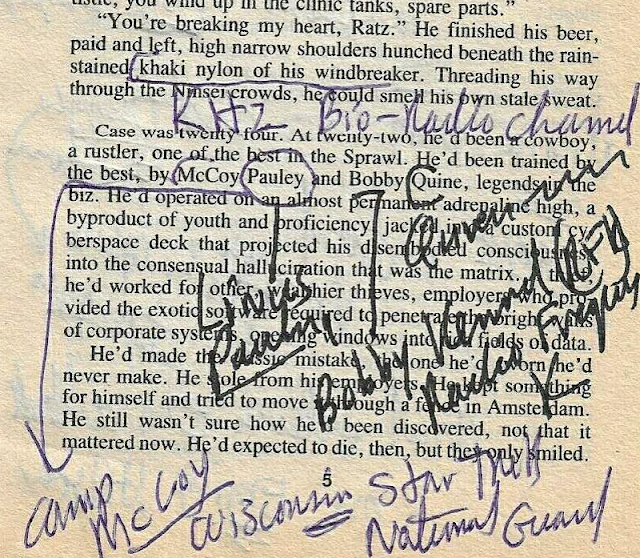 tistic, you wind up in the clinic tanks, spare parts."
"You're breaking my heart, Ratz." He finished his beer,
paid and left, high narrow shoulders hunched beneath the rain-
stained khaki nylon of his windbreaker. Threading his way
through the Ninsei crowds, he could smell his own stale sweat.
KHZ Bio-Radio channel
Case was twenty four. At twenty-two, he'd been a cowboy,
a rustler, one of the best in the Sprawl. He'd been trained by
the best, by McCoy Pauley and Bobby Quine, legends in the
biz. He'd operated on an almost permanent adrenaline high, a
byproduct of youth and proficiency, jacked into a custom cy-
berspace deck that projected his disembodied consciousness
into the consensual hallucination that was the matrix. A thief,
he'd worked for other, wealthier thieves, employers who pro-
vided the exotic software required to penetrate the bright walls
of corporate systems, opening windows into rich fields of data.
He'd made the classic mistake, the one he'd sworn he'd
never make. He stole from his employers. He kept something
for himself and tried to move it through a fence in Amsterdam.
He still wasn't sure how he'd been discovered, not that it
mattered now. He'd expected to die, then, but they only smiled.
Linus
Pauling
Bobby Kennedy (RFK)
Radio
5
Camp
McCoy
Wisconsin
Star Trek
National Guard